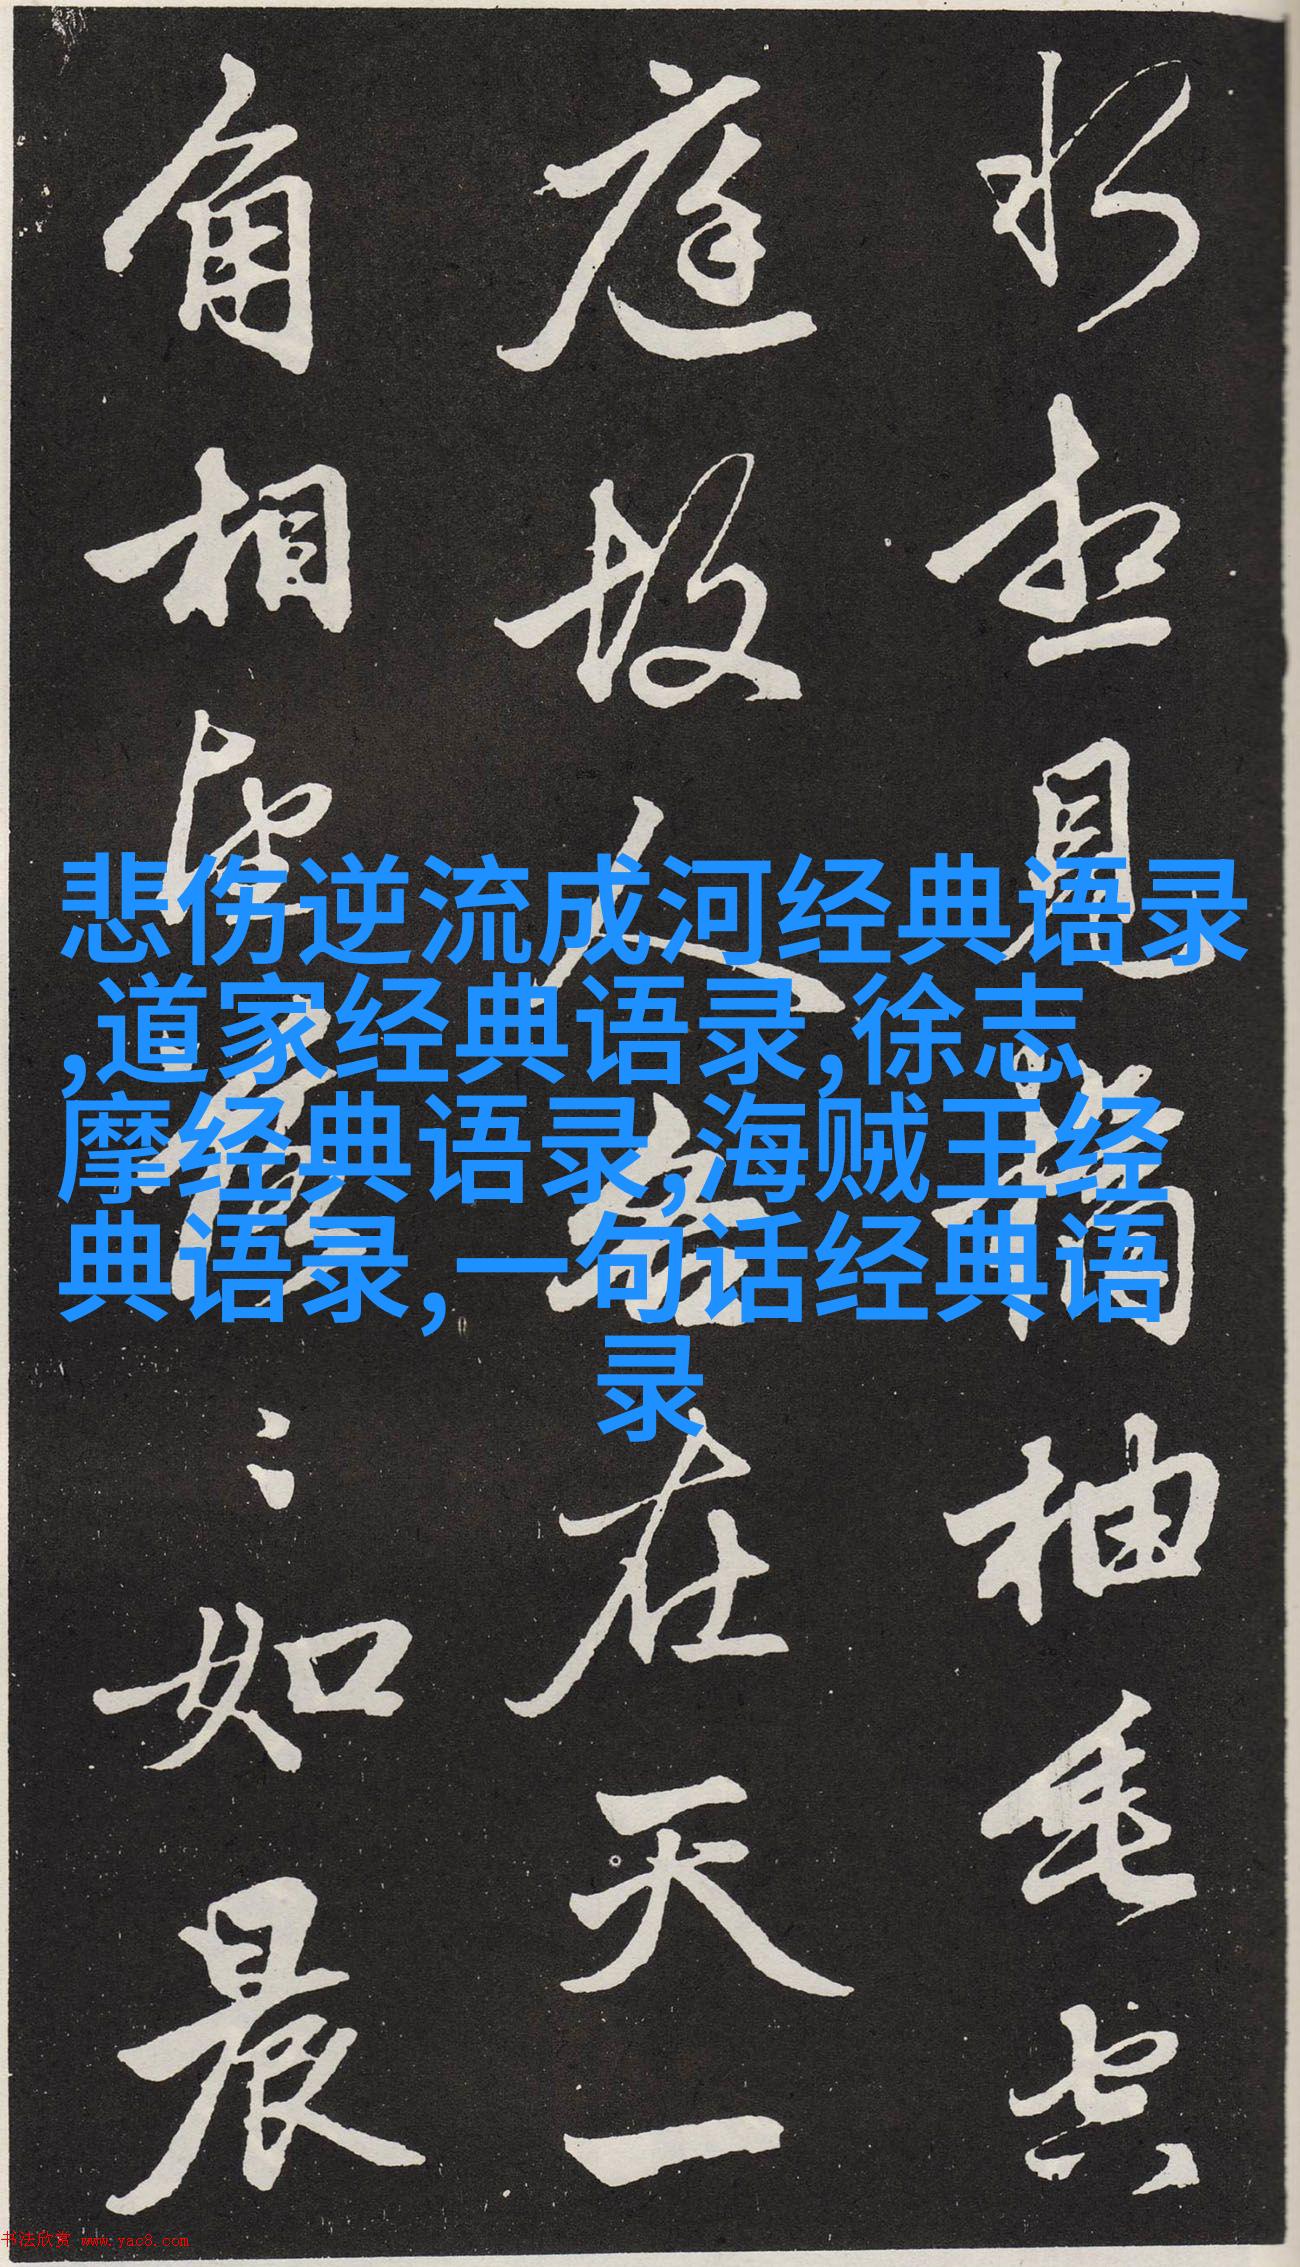 水想見橘柚垂空
庭故人各在天一
角相望落〻如晨
悲伤逆流成河经典语录
,道家经典语录,徐志
摩经典语录,海贼王经
典语录, 一句话经典语
录
书法欣赏 www.yac8.com